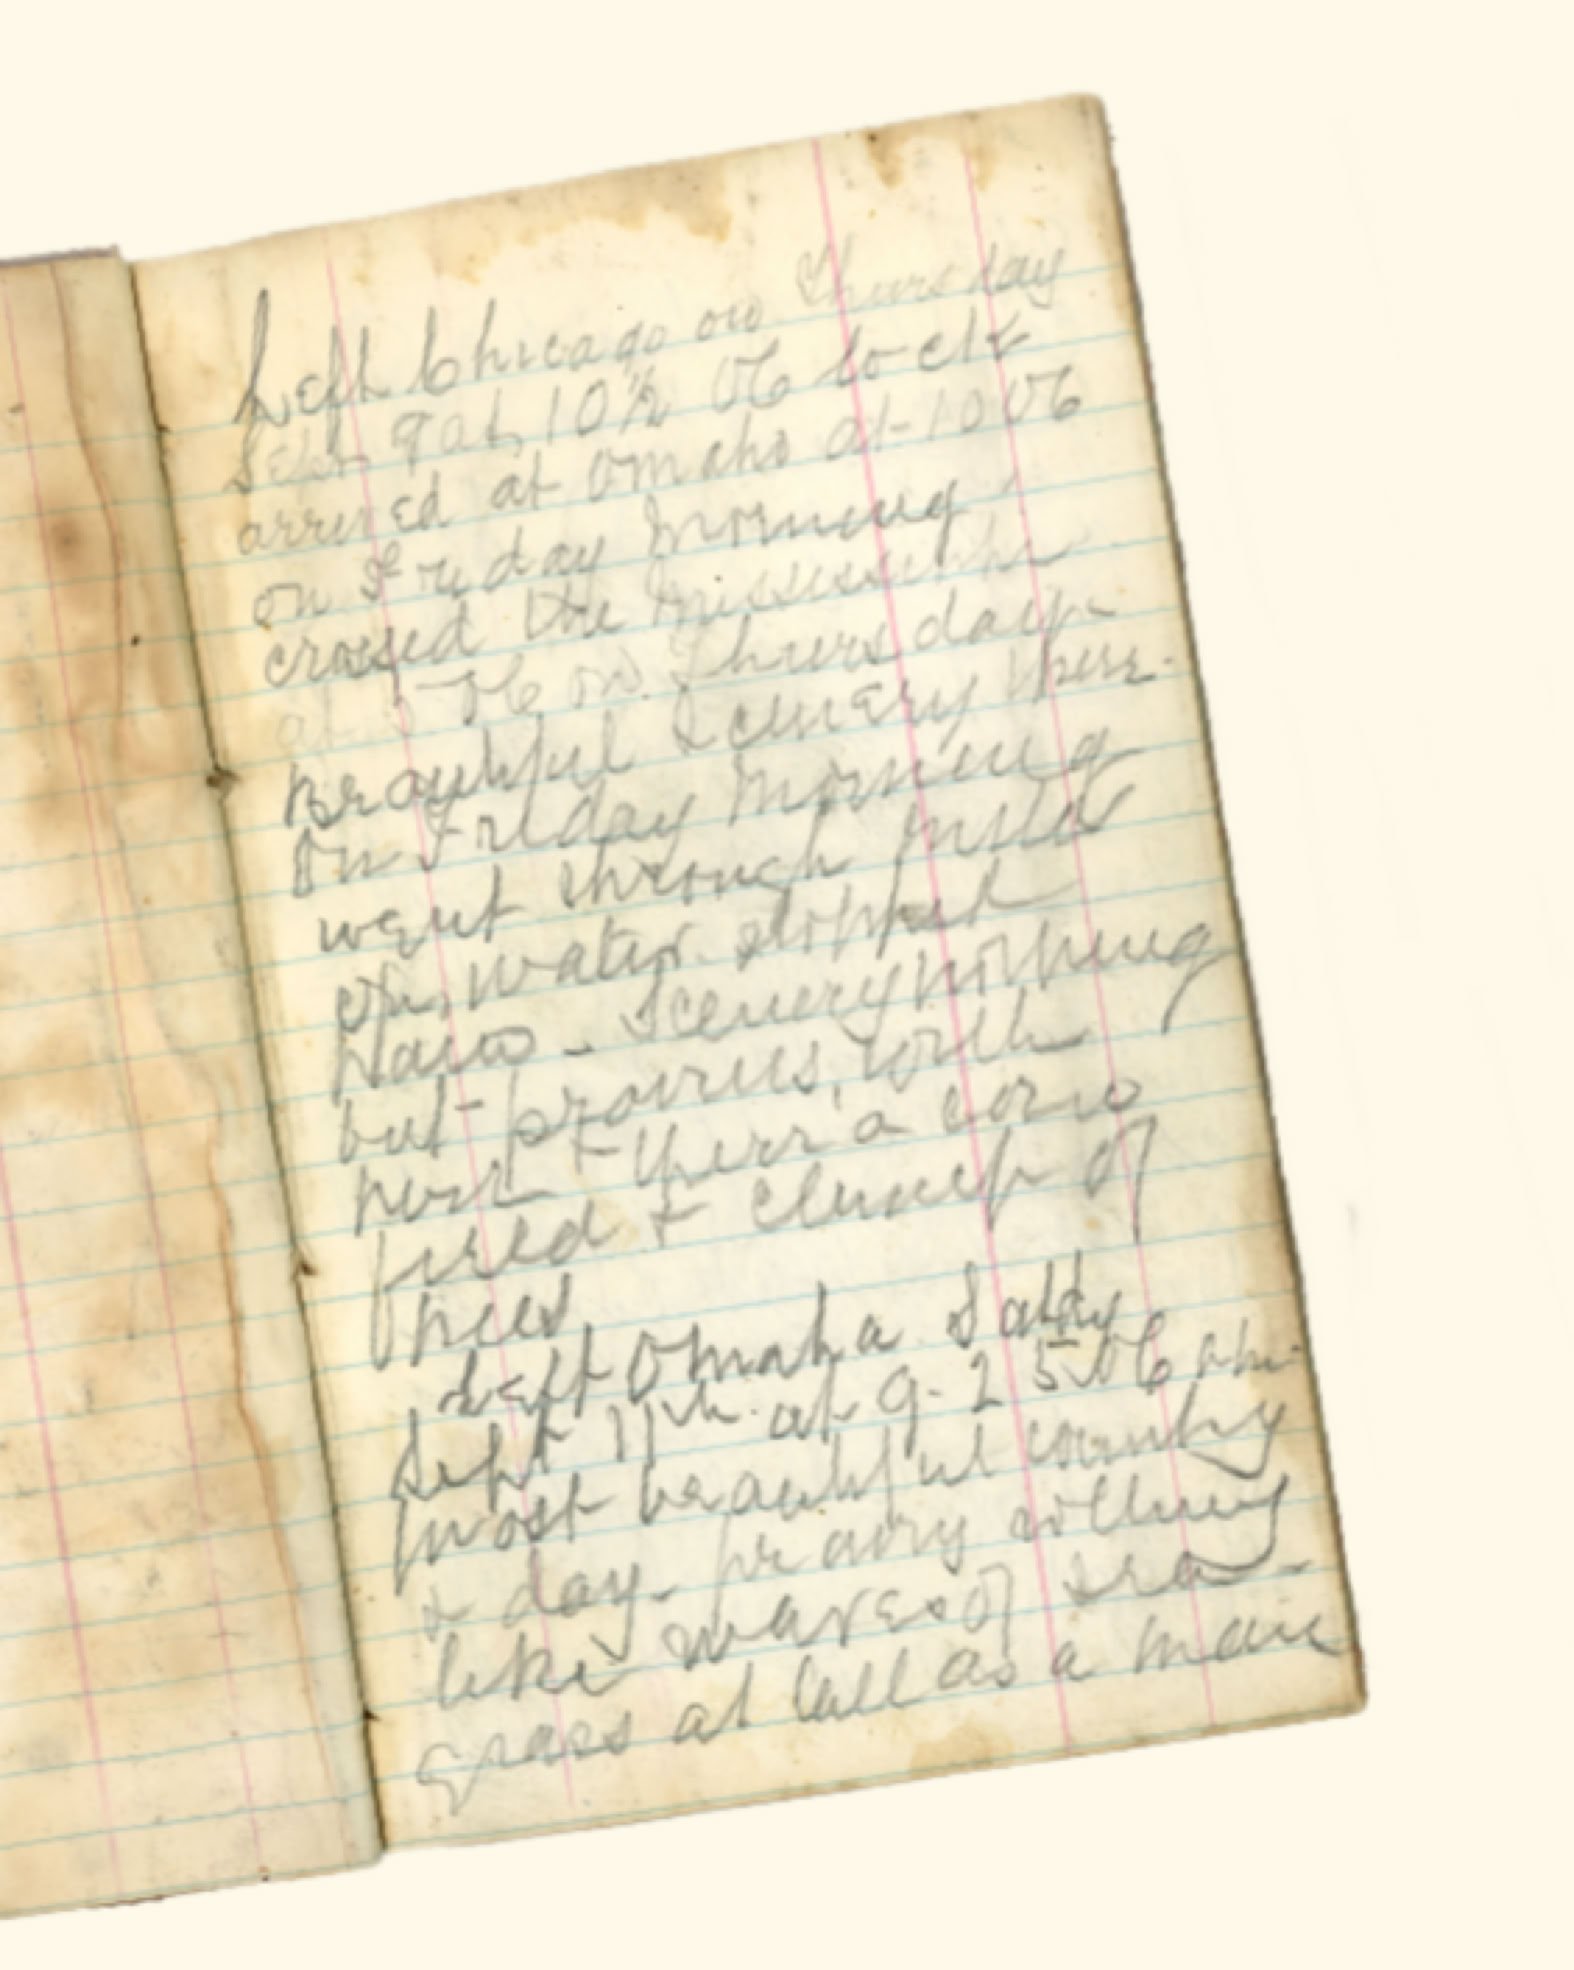 Left Chicago on Thursday
Sept 9 at 10½ Oc lock
arrived at Omaha at 10 Oc
on Friday Morning
crossed the Mississippi
at Oc on Thursday
Beautiful Scenery there.
On Friday Morning
went through
water stopped
Scenery nothing
but prairies, with
here + there a corn
field + clump of
trees
Left Omaha Satdy
Sept 11th at 9-25 Oc
most beautiful country
+ day - prairy rolling
like waves of sea -
grass as tall as a man